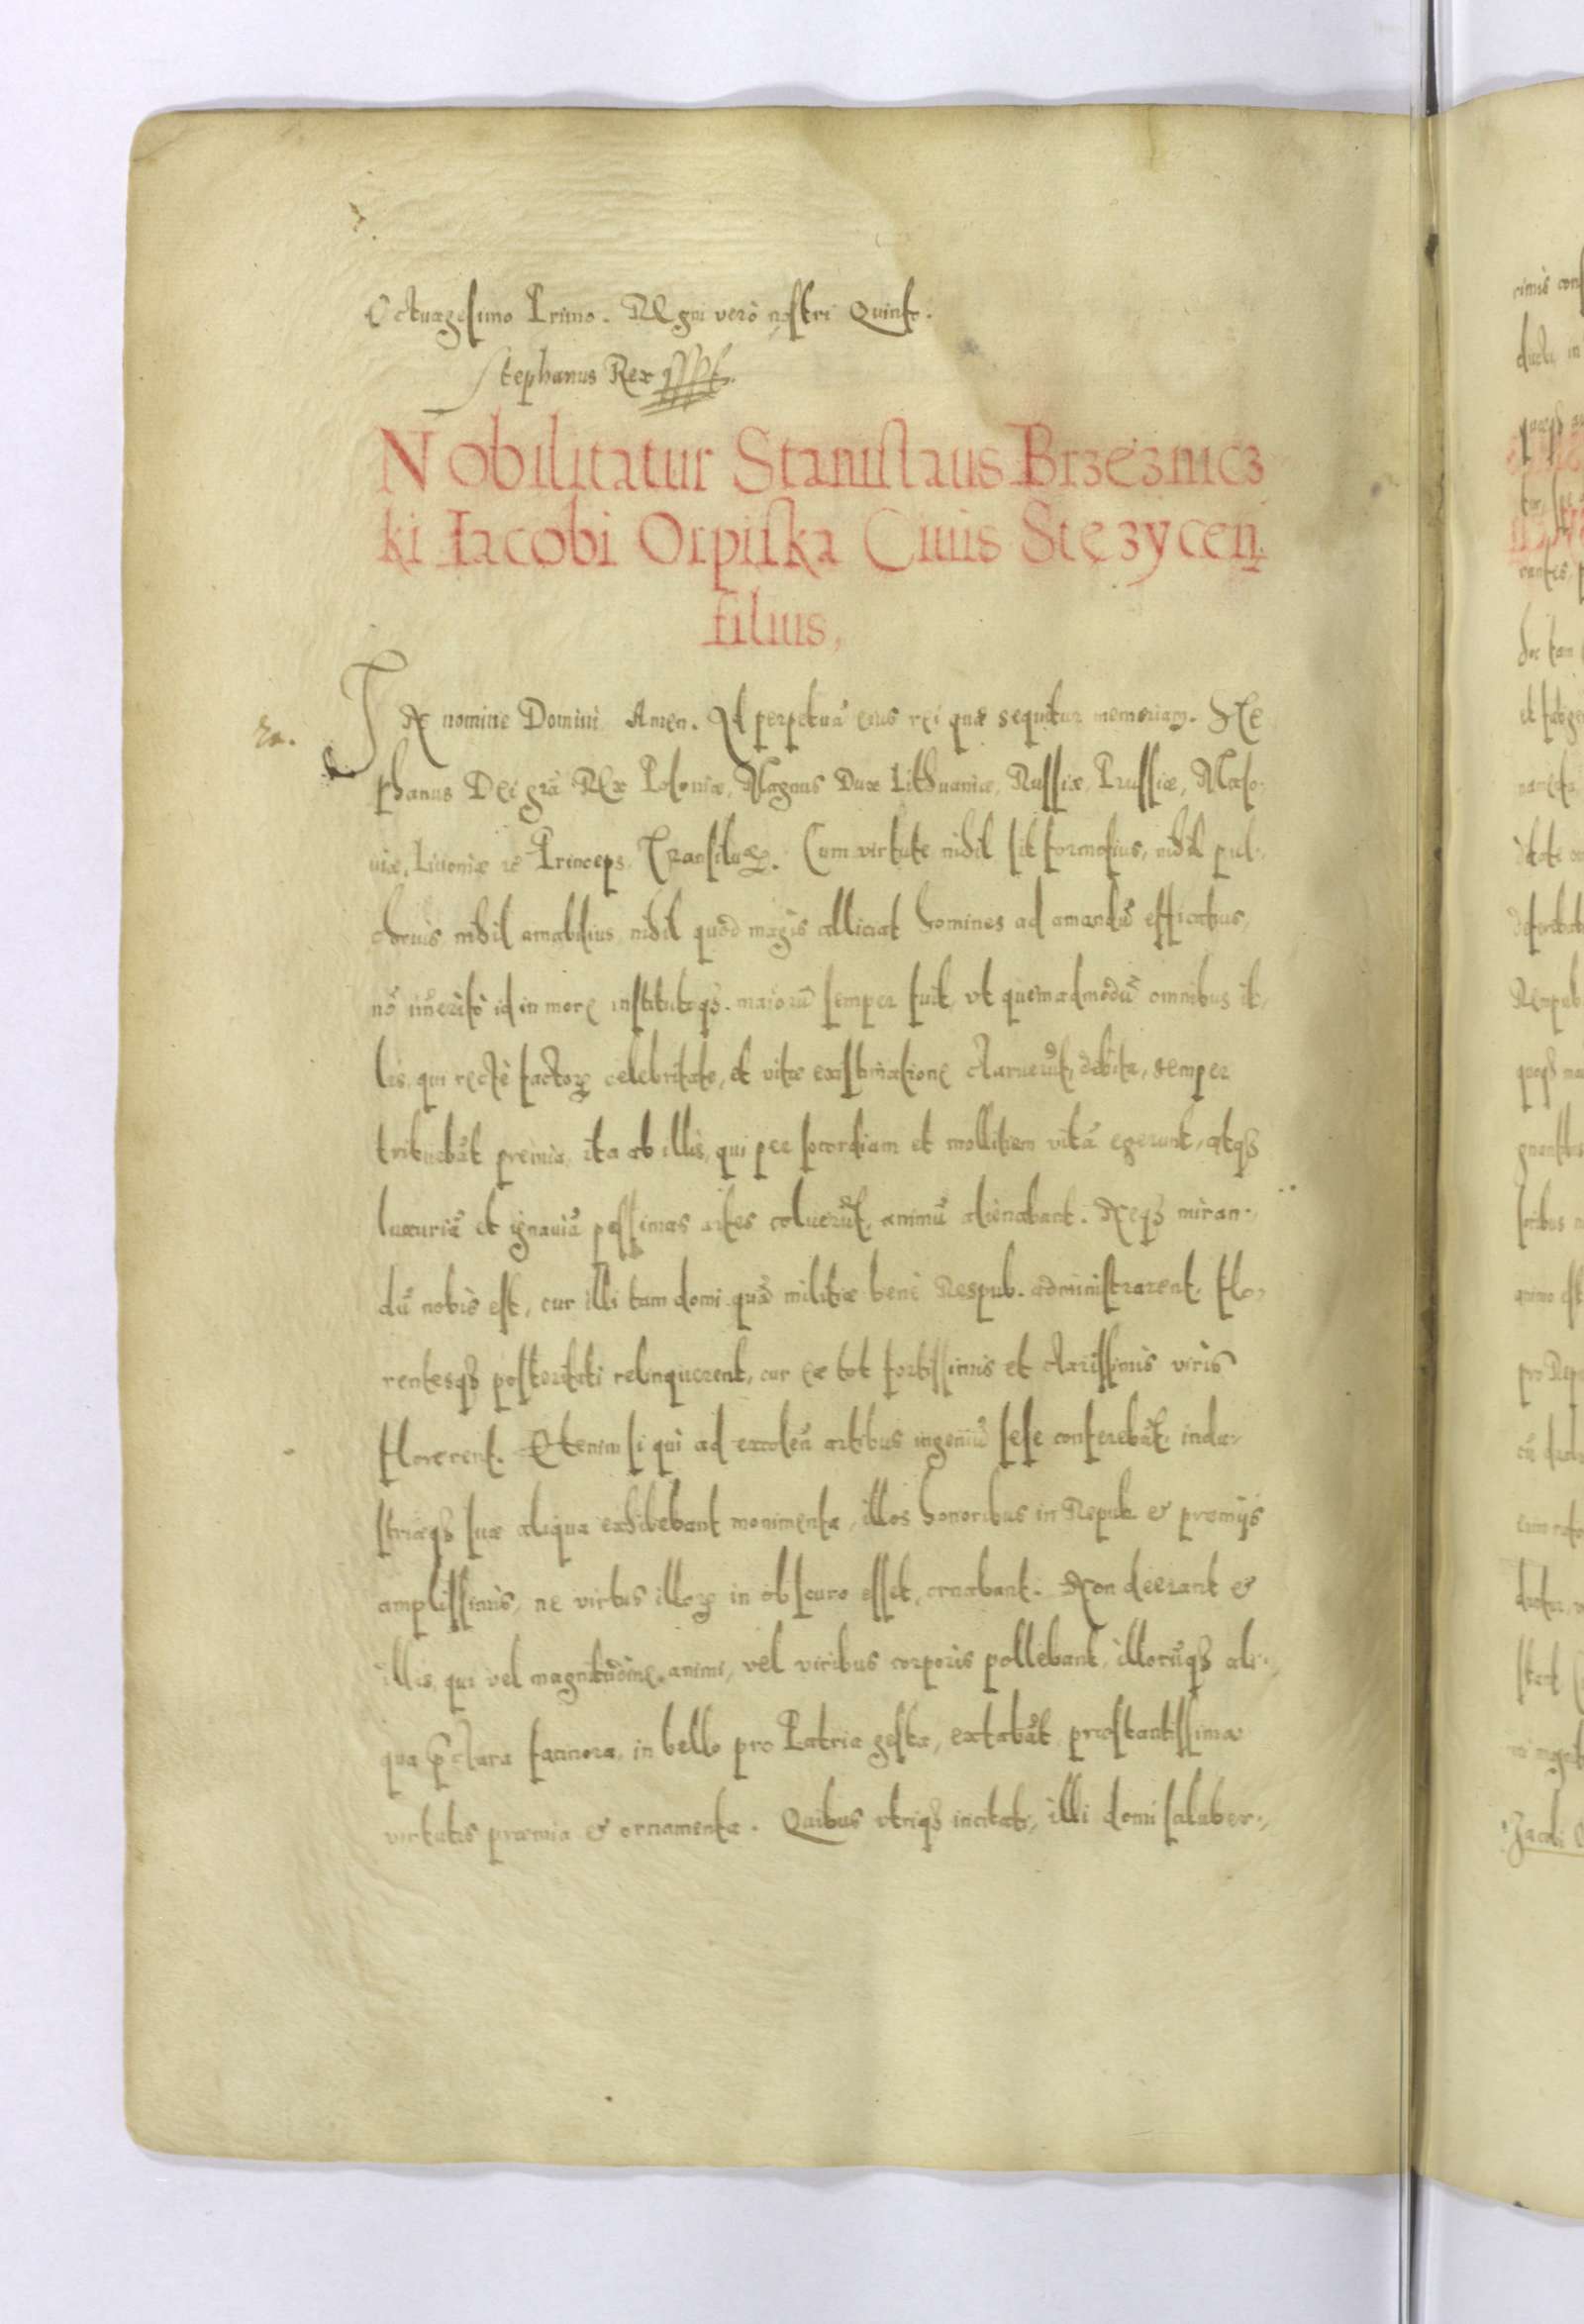 Octuagesimo Primo. Regni verò nostri Quinto.
Stephanus Rex sspt.
Nobilitatur Stanislaus Brzeznicz
ki Iacobi Orpiska Ciuis Stezyceń.
filius,
In nomine Domini Amen. Ad perpetuā eius rei quæ sequitur memoriam. Ste
phanus Dei grā Rex Poloniæ, Magnus Dux Lithuaniæ, Russiæ, Prussiæ, Maso-
uiæ, Liuoniæ ꝛc Princeps Transiluaꝫ. Cum virtute nihil sit formosius, nihil pul-
chrius nihil amabilius nihil quod magis alliciat homines ad amandū efficatius,
nō im̄erito id in more institutoqꝫ maiorū semper fuit, vt quemadmodū omnibus il-
lis, qui rectè factoꝝ celebritate, et vitæ existimatione claruerūt, debita, semper
tribuebāt premia, ita ab illis, qui per socordiam et mollitiem vitā egerunt, atqꝫ
luxuriā et ignauiā pessimas artes coluerūt, animū alienabant. Neqꝫ miran-
dū nobis est, cur illi tam domi quā militiæ benè Respub. administrarent, flo-
rentesqꝫ posteritati relinquerent, cur ex tot fortissimis et clarissimis viris
florerent. Etenim si qui ad excolēn artibus ingeniū sese conferebāt, indu-
striæqꝫ suæ aliqua exhibebant monimenta, illos honoribus in Repub. & præmijs
amplissimis, ne virtus illoꝝ in obscuro esset, ornabant. Non deerant &
illis, qui vel magnitudine animi, vel viribus corporis pollebant, illorūqꝫ ali-
qua p̄clara facinora, in bello pro Patria gesta, extabāt, præstantissima
virtutis præmia & ornamenta. Quibus vtriqꝫ incitati, illi domi saluber-